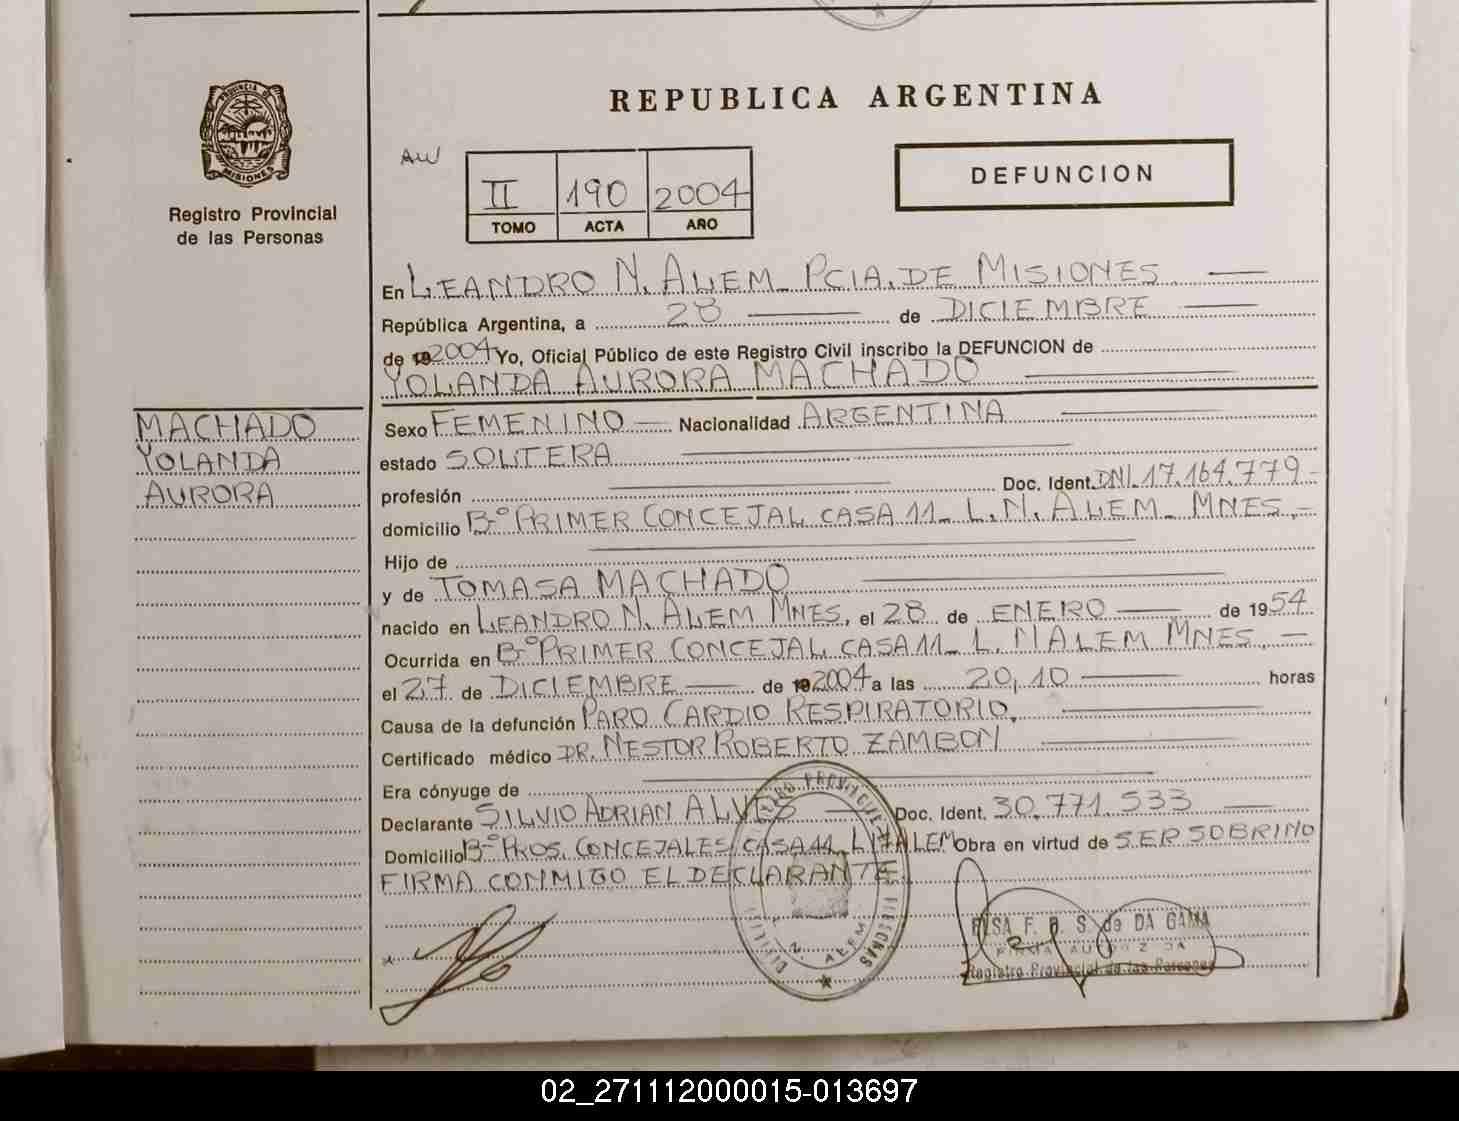 REPUBLICA ARGENTINA
PROVINCIA DE
MISIONES
Registro Provincial
de las Personas
AW
II 190 2004
TOMO ACTA AÑO
DEFUNCION
En LEANDRO N. ALEM. PCIA. DE MISIONES
República Argentina, a 28 de DICIEMBRE
de 192004 Yo, Oficial Público de este Registro Civil inscribo la DEFUNCION de
YOLANDA AURORA MACHADO
MACHADO
YOLANDA
AURORA
Sexo FEMENINO Nacionalidad ARGENTINA
estado SOLTERA
profesión Doc. Ident. DNI. 17.164.779
domicilio Bº PRIMER CONCEJAL CASA 11_ L.N. ALEM_ MNES.
Hijo de
y de TOMASA MACHADO
nacido en LEANDRO N. ALEM MNES, el 28 de ENERO de 1954
Ocurrida en Bº PRIMER CONCEJAL CASA 11_ L. N ALEM MNES.
el 27 de DICIEMBRE de 192004 a las 20,10 horas
Causa de la defunción PARO CARDIO RESPIRATORIO.
Certificado médico DR. NESTOR ROBERTO ZAMBON
Era cónyuge de
Declarante SILVIO ADRIAN ALVES Doc. Ident. 30.771.533
Domicilio Bº PROS. CONCEJALES CASA 11_ L.N ALEM Obra en virtud de SER SOBRINO
FIRMA CONMIGO EL DECLARANTE.
N. ALEM
F. B. S. de DA GAMA
FIRMA AUTORIZADA
Registro Provincial de las Personas
02_271112000015-013697